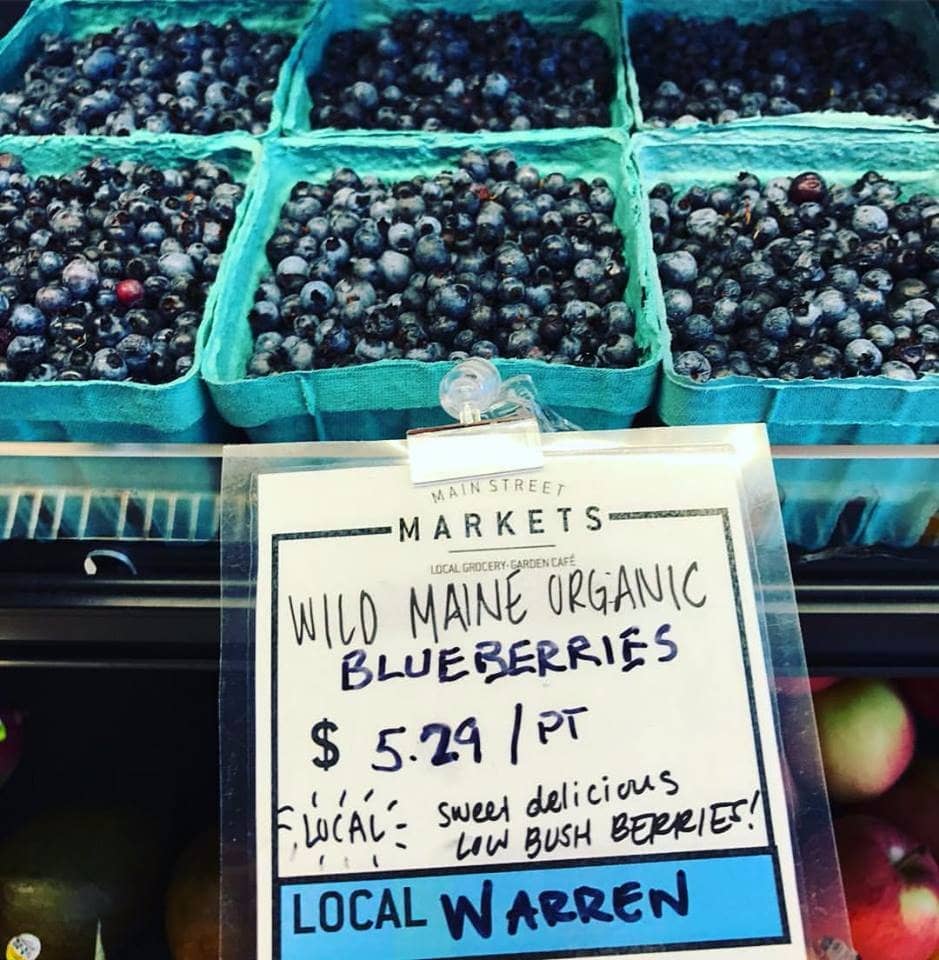 MAIN STREET
MARKETS
LOCAL GROCERY-GARDEN CAFÉ
WILD MAINE ORGANIC
BLUEBERRIES
$ 5.29 / PT
LOCAL sweet delicious
LOW BUSH BERRIES!
LOCAL WARREN